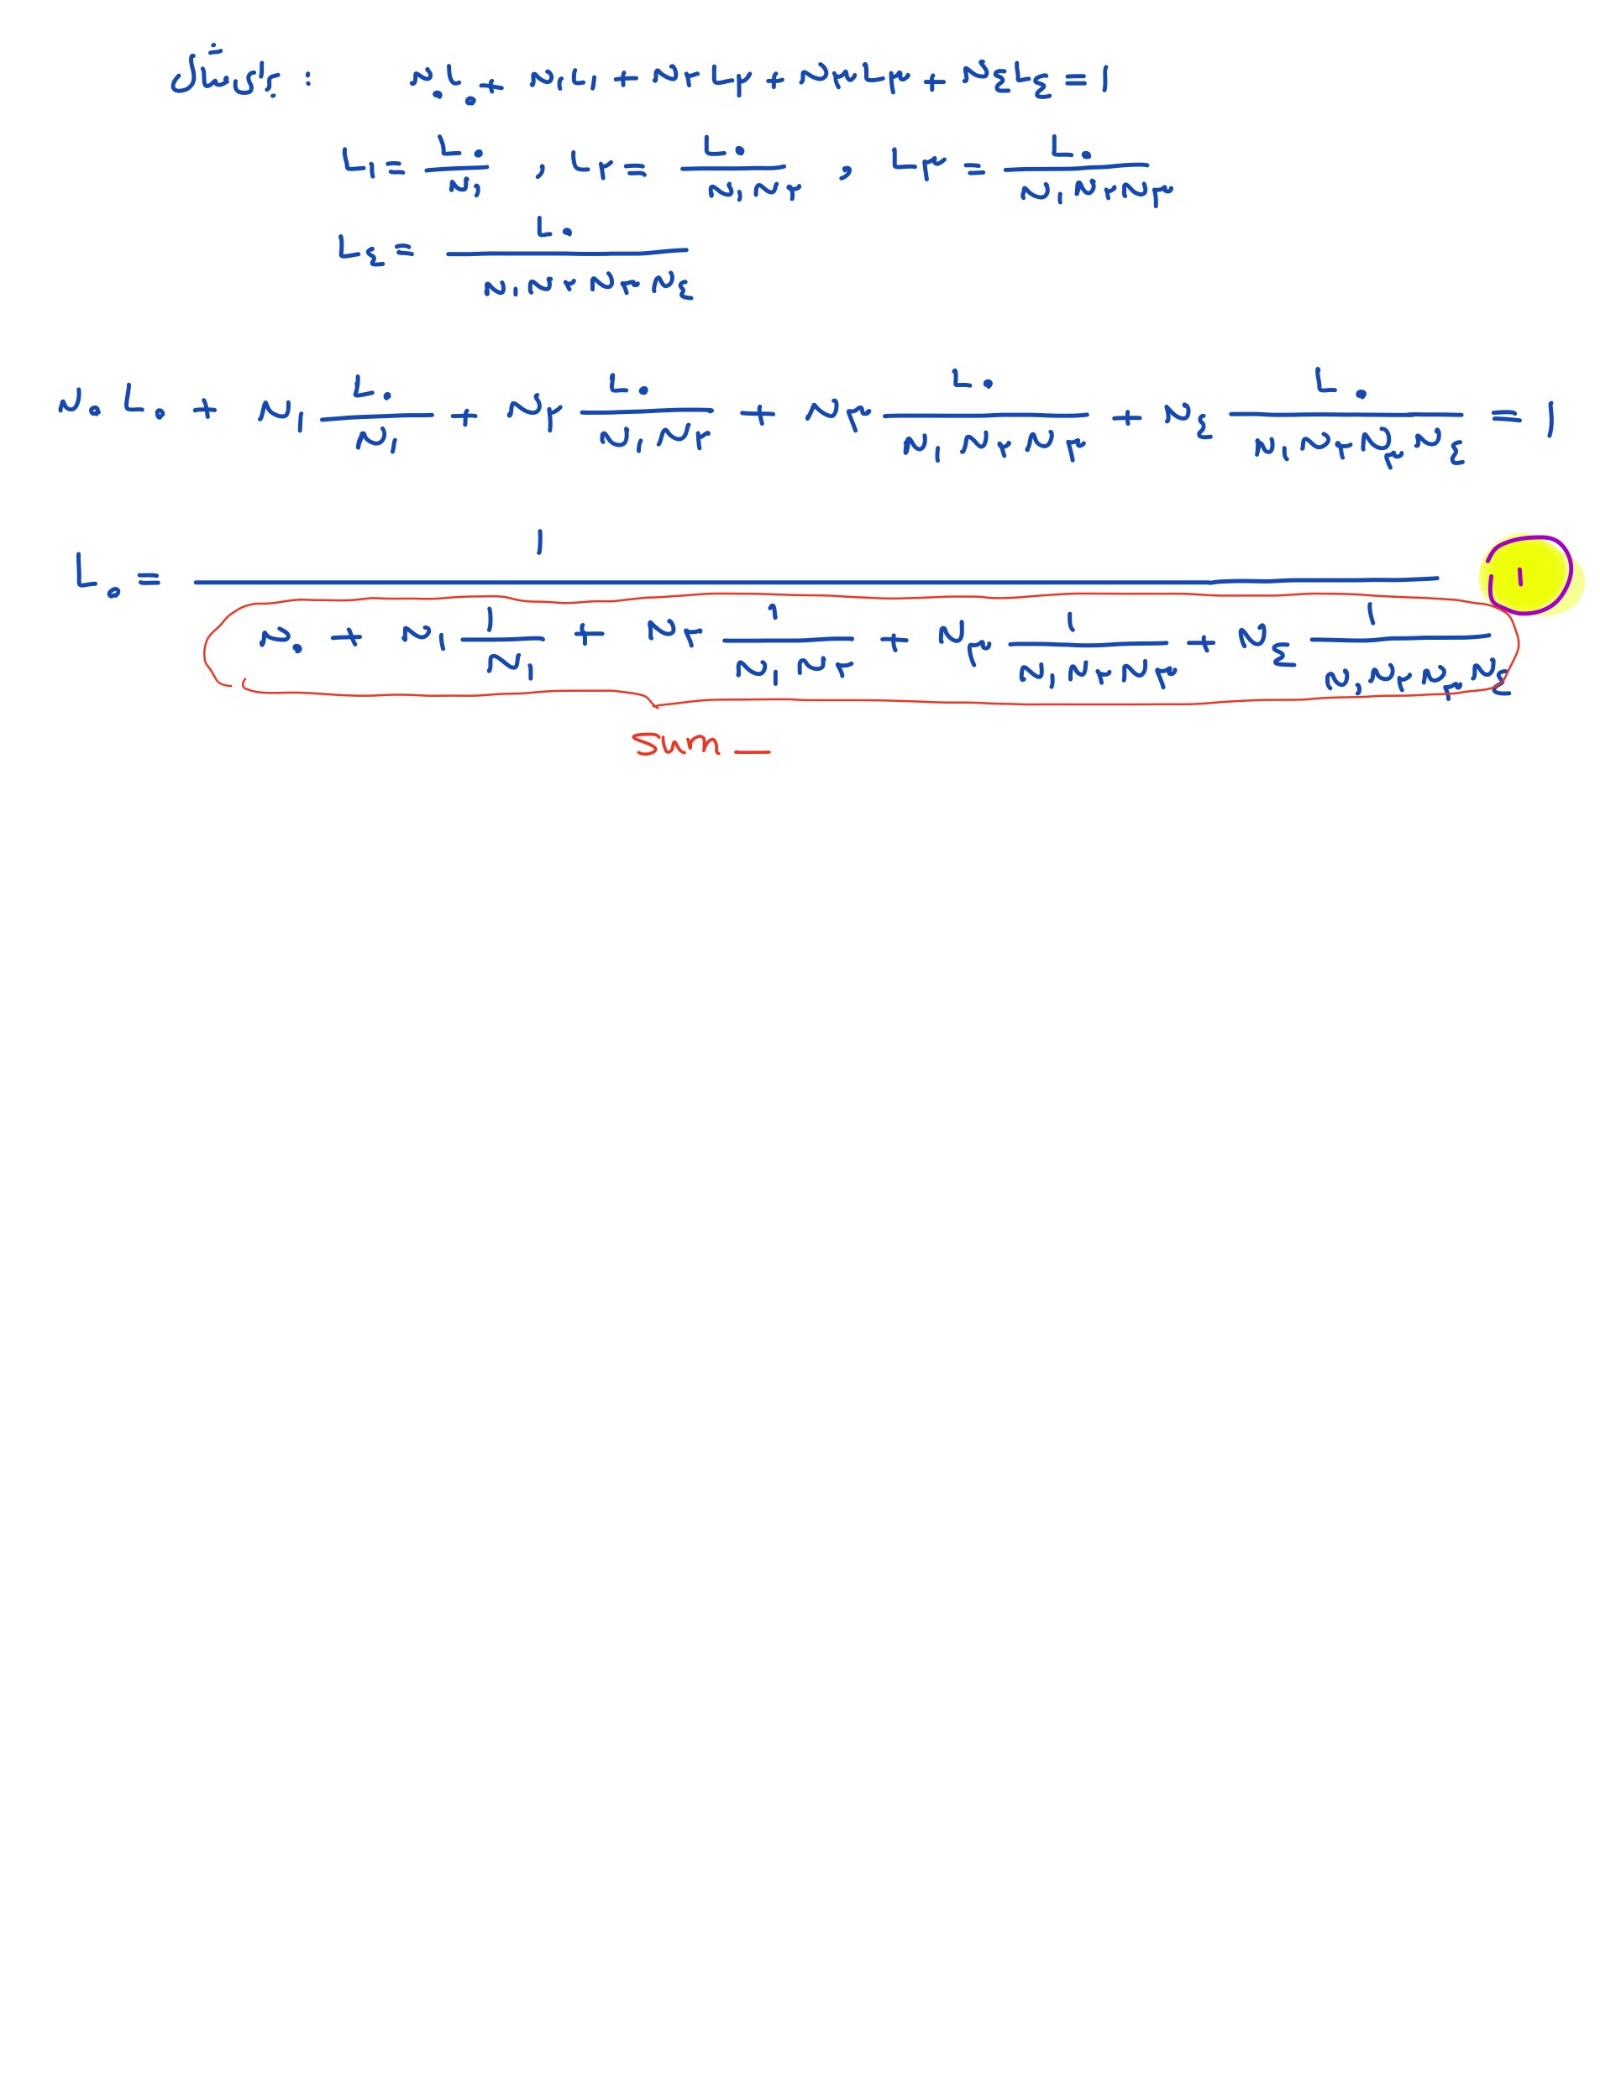 برای مثال : N۰L۰ + N۱L۱ + N۲L۲ + N۳L۳ + N٤L٤ = ۱
L۱ = L۰/N۱ , L۲ = L۰/N۱N۲ , L۳ = L۰/N۱N۲N۳
L٤ = L۰/N۱N۲N۳N٤
N۰L۰ + N۱ L۰/N۱ + N۲ L۰/N۱N۲ + N۳ L۰/N۱N۲N۳ + N٤ L۰/N۱N۲N۳N٤ = ۱
L۰ = ۱/(N۰ + N۱ ۱/N۱ + N۲ ۱/N۱N۲ + N۳ ۱/N۱N۲N۳ + N٤ ۱/N۱N۲N۳N٤) ۱
sum _